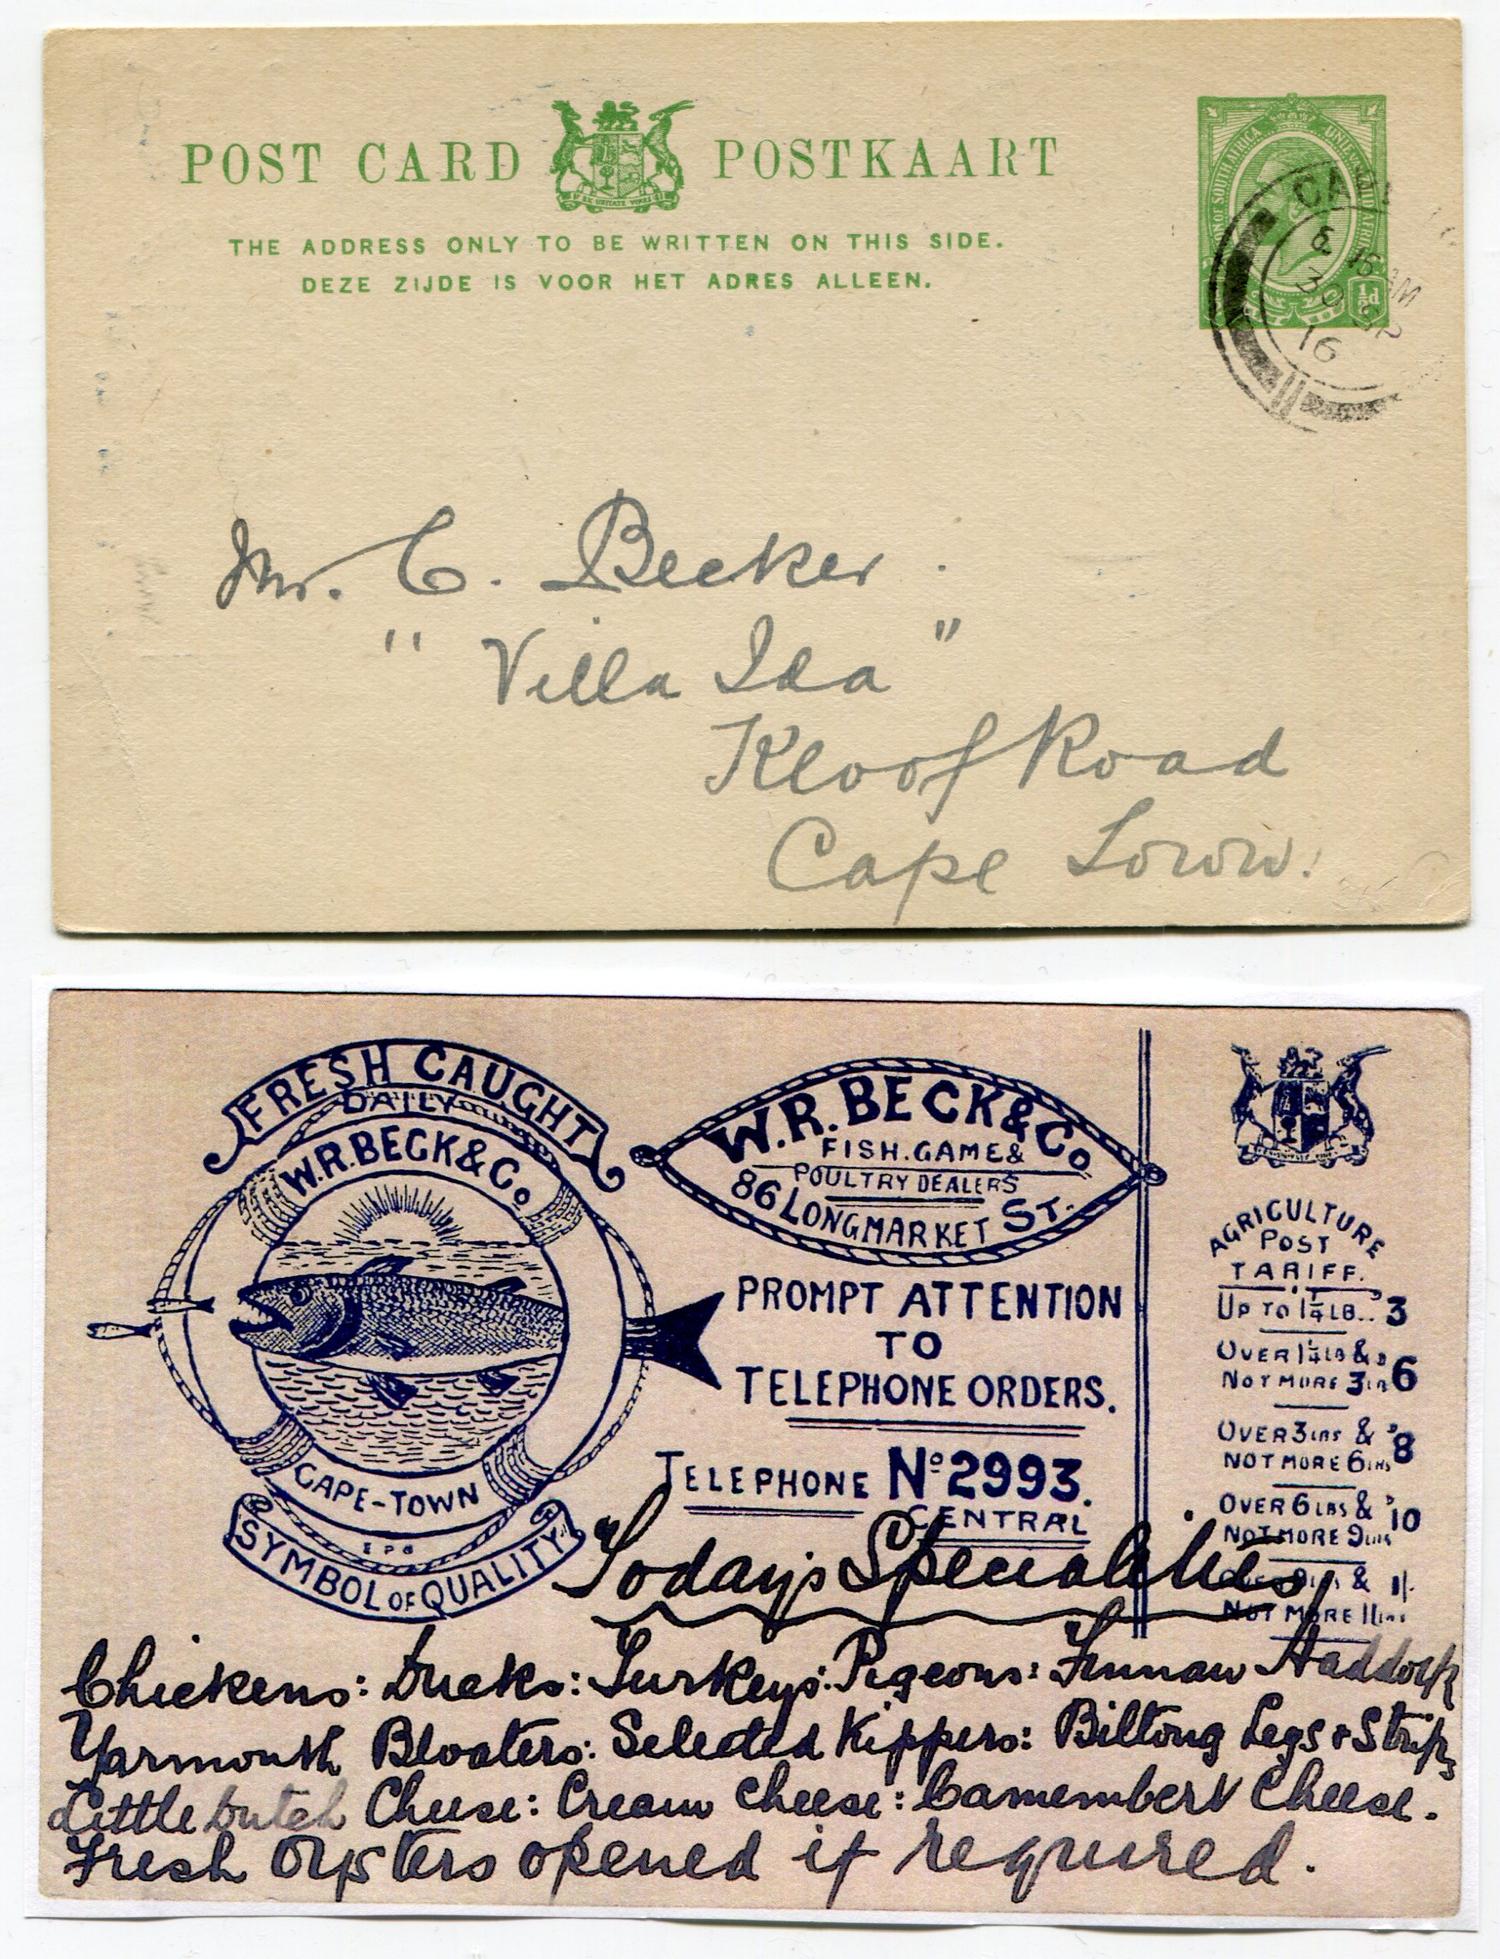 POST CARD POSTKAART
THE ADDRESS ONLY TO BE WRITTEN ON THIS SIDE.
DEZE ZIJDE IS VOOR HET ADRES ALLEEN.
OF SOUTH AFRICA UNIE VAN ZUID AFRIKA
½d
30 SP
16
Mr. C. Becker.
"Villa Ida"
Kloof Road
Cape Town.
FRESH CAUGHT
DAILY
W.R. BECK & Co
CAPE-TOWN
SYMBOL OF QUALITY
W.R. BECK & Co
FISH. GAME &
POULTRY DEALERS
86 LONGMARKET ST.
PROMPT ATTENTION
TO
TELEPHONE ORDERS.
TELEPHONE No 2993.
CENTRAL
AGRICULTURE
POST
TARIFF.
UP TO 1¼ LB.. 3
OVER 1¼ LB &
NOT MORE 3 LB 6
OVER 3 LBS &
NOT MORE 6 LBS 8
OVER 6 LBS &
NOT MORE 9 LBS 10
OVER 9 LBS & 1/-
NOT MORE 11 LBS
Today's Specialities
Chickens: Ducks: Turkeys: Pigeons: Finnan Haddock
Yarmouth Bloaters: Selected Kippers: Biltong Legs & Strips
Little Dutch Cheese: Cream cheese: Camembert Cheese.
Fresh Oysters opened if required.